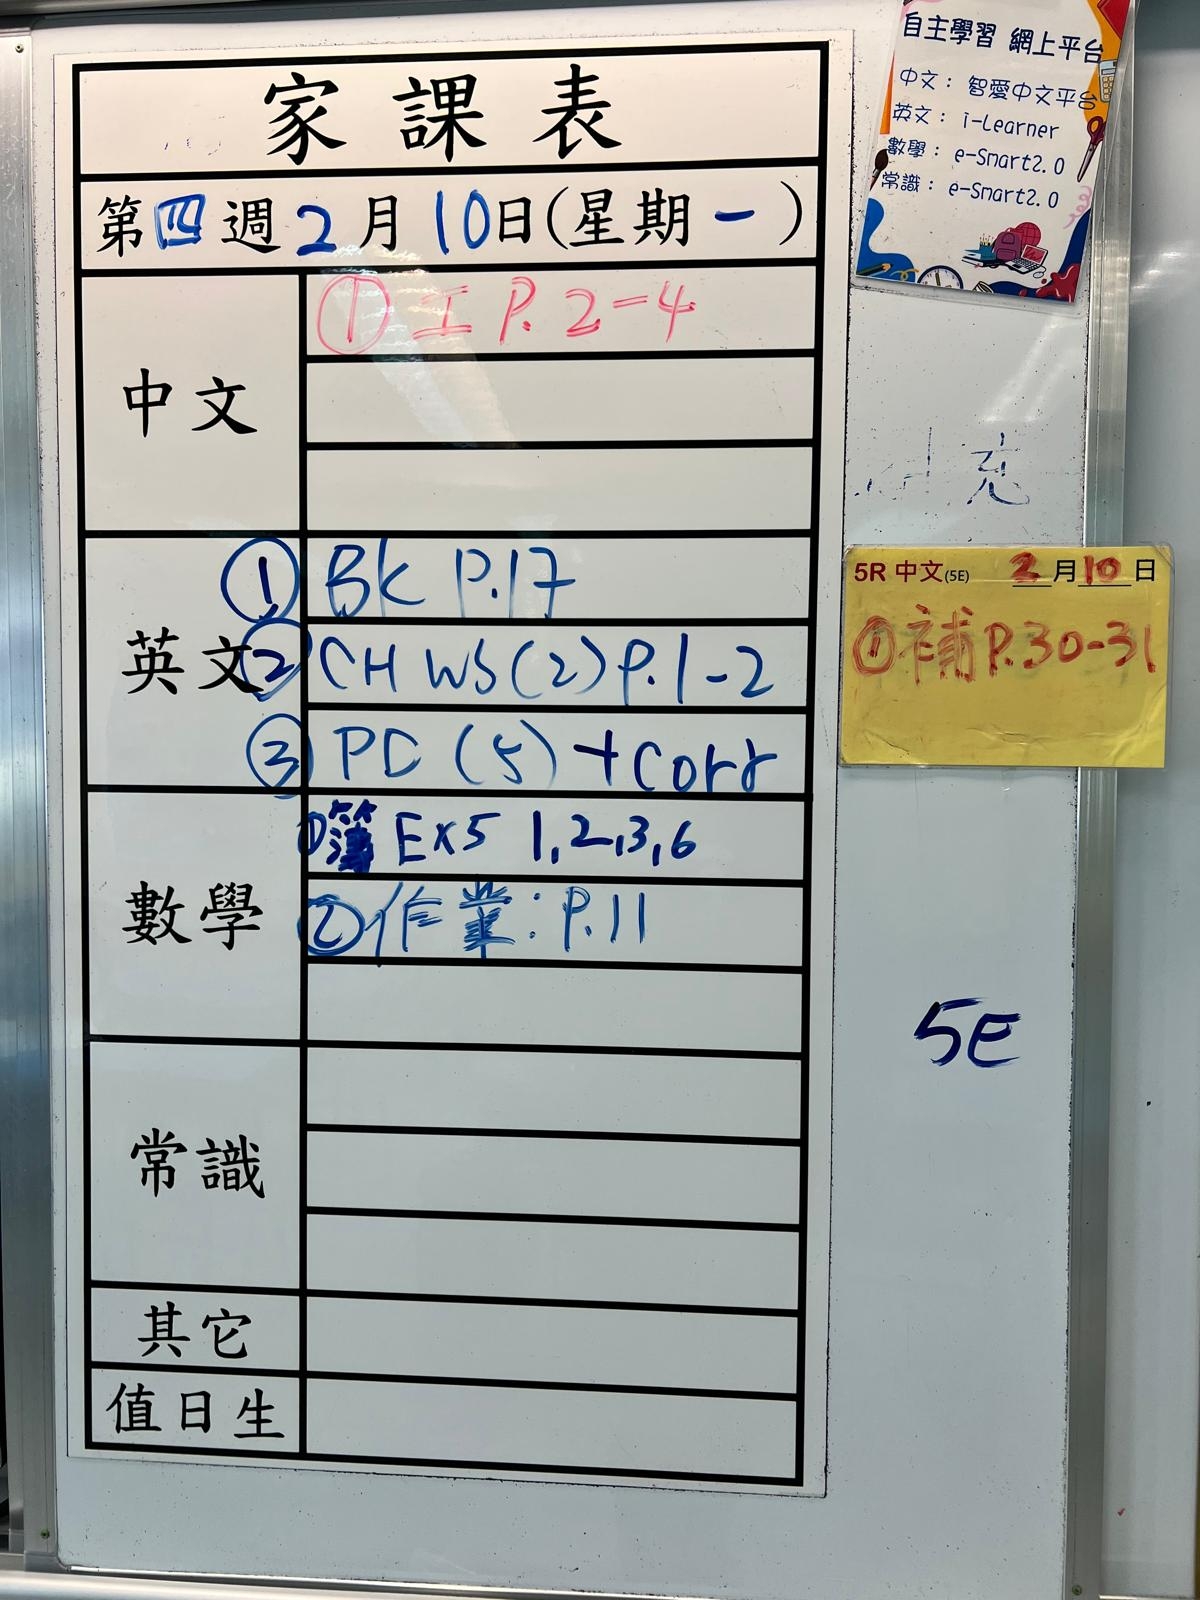 家課表
第四週2月10日(星期一)
中文
① 工 P. 2-4
英文
① BK P.17
② CH WS(2) P.1-2
③ PD (5) + Corr
數學
① 簿 Ex5 1,2,3,6
② 作業: P.11
常識
其它
值日生
自主學習 網上平台
中文: 智愛中文平台
英文: i-Learner
數學: e-Smart2.0
常識: e-Smart2.0
充
5R 中文(5E) 2月10日
① 補 P.30-31
5E